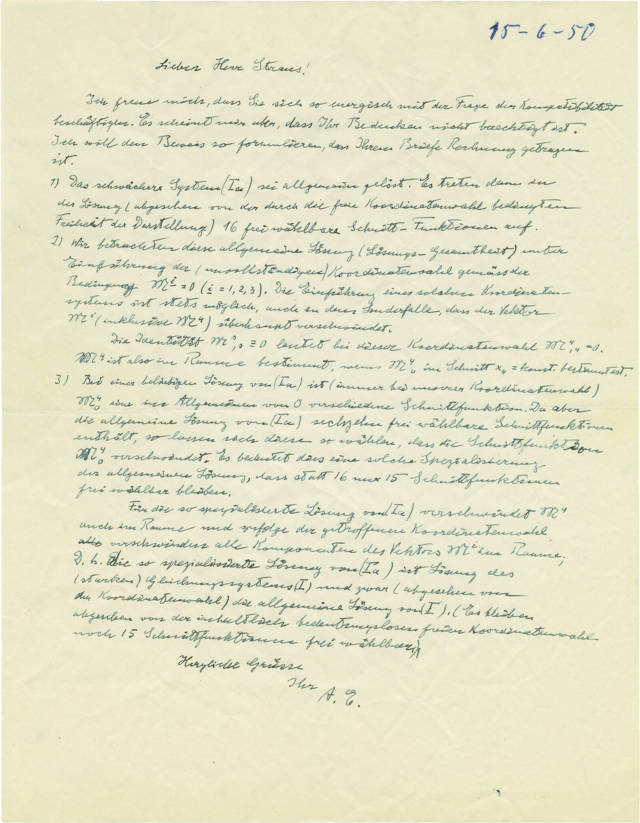 15-6-50
Lieber Herr Straus!
Ich freue mich, dass Sie sich so energisch mit der Frage der Kompatibilität
beschäftigen. Es scheint mir aber, dass Ihr Bedenken nicht berechtigt ist.
Ich will den Beweis so formulieren, dass Ihrem Briefe Rechnung getragen
ist.
1) Das schwächere System (Ia) sei allgemein gelöst. Es treten dann in
der Lösung (abgesehen von der durch die freie Koordinatenwahl bedingten
Freiheit der Darstellung) 16 frei wählbare Schnitt-Funktionen auf.
2) Wir betrachten diese allgemeine Lösung (Lösungs-Gesamtheit) unter
Einführung der (unvollständigen) Koordinatenwahl gemäss der
Bedingung 𝔐^i = 0 (i = 1, 2, 3). Die Einführung eines solchen Koordinaten-
systems ist stets möglich, auch in dem Sonderfalle, dass der Vektor
𝔐^s (inklusive 𝔐^4) überhaupt verschwindet.
Die Identität 𝔐^s,s ≡ 0 lautet bei dieser Koordinatenwahl 𝔐^4,4 = 0.
𝔐^4 ist also im Raume bestimmt, wenn 𝔐^4 im Schnitt x4 = konst. bestimmt ist.
3) Bei einer beliebigen Lösung von (Ia) ist (immer bei unserer Koordinatenwahl)
𝔐^4 eine im Allgemeinen von 0 verschiedene Schnittfunktion. Da aber
die allgemeine Lösung von (Ia) sechzehn frei wählbare Schnittfunktionen
enthält, so lassen sich diese so wählen, dass die Schnittfunktion
𝔐^4 verschwindet. Es bedeutet dies eine solche Spezialisierung
der allgemeinen Lösung, dass statt 16 nur 15 Schnittfunktionen
frei wählbar bleiben.
Für die so spezialisierte Lösung von (Ia) verschwindet 𝔐^4
auch im Raume und infolge der getroffenen Koordinatenwahl
verschwinden alle Komponenten des Vektors 𝔐^s im Raume,
D. h. die so spezialisierte Lösung von (Ia) ist Lösung des
(starken) Gleichungssystems (I) und zwar (abgesehen von
der Koordinatenwahl) die allgemeine Lösung von (I). (Es bleiben
abgesehen von der inhaltlich bedeutungslosen freien Koordinatenwahl
noch 15 Schnittfunktionen frei wählbar.)
Herzliche Grüsse
Ihr
A. E.